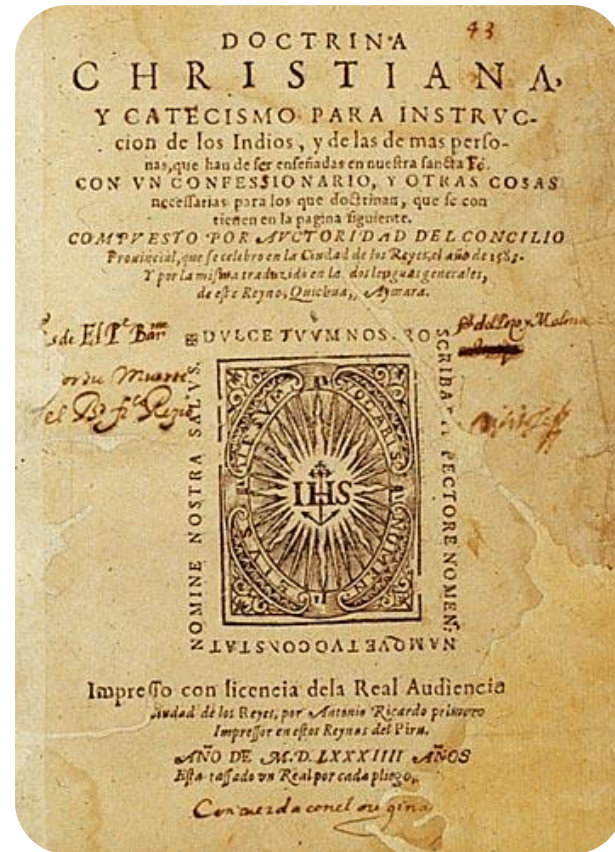 43
DOCTRINA
CHRISTIANA,
Y CATECISMO PARA INSTRVC-
cion de los Indios, y de las de mas perso-
nas, que han de ser enseñadas en nuestra sancta Fé.
CON VN CONFESSIONARIO, Y OTRAS COSAS
necessarias para los que doctrinan, que se con
tienen en la pagina siguiente.
COMPVESTO POR AVCTORIDAD DEL CONCILIO
Prouincial, que se celebro en la Ciudad de los Reyes, el año de 1583.
Y por la misma traduzido en las dos lenguas generales,
de este Reyno, Quichua, y Aymara.
DVLCE TVVM NOSTRO
SCRIBAS PECTORE NOMEN:
NAMQVE TVO CONSTAT
NOMINE NOSTRA SALVS.
IHS
Impresso con licencia dela Real Audiencia
Ciudad de los Reyes, por Antonio Ricardo primero
Impressor en estos Reynos del Piru.
AÑO DE M.D.LXXXIIII AÑOS
Esta tassado vn Real por cada pliego,
Concuerda con el